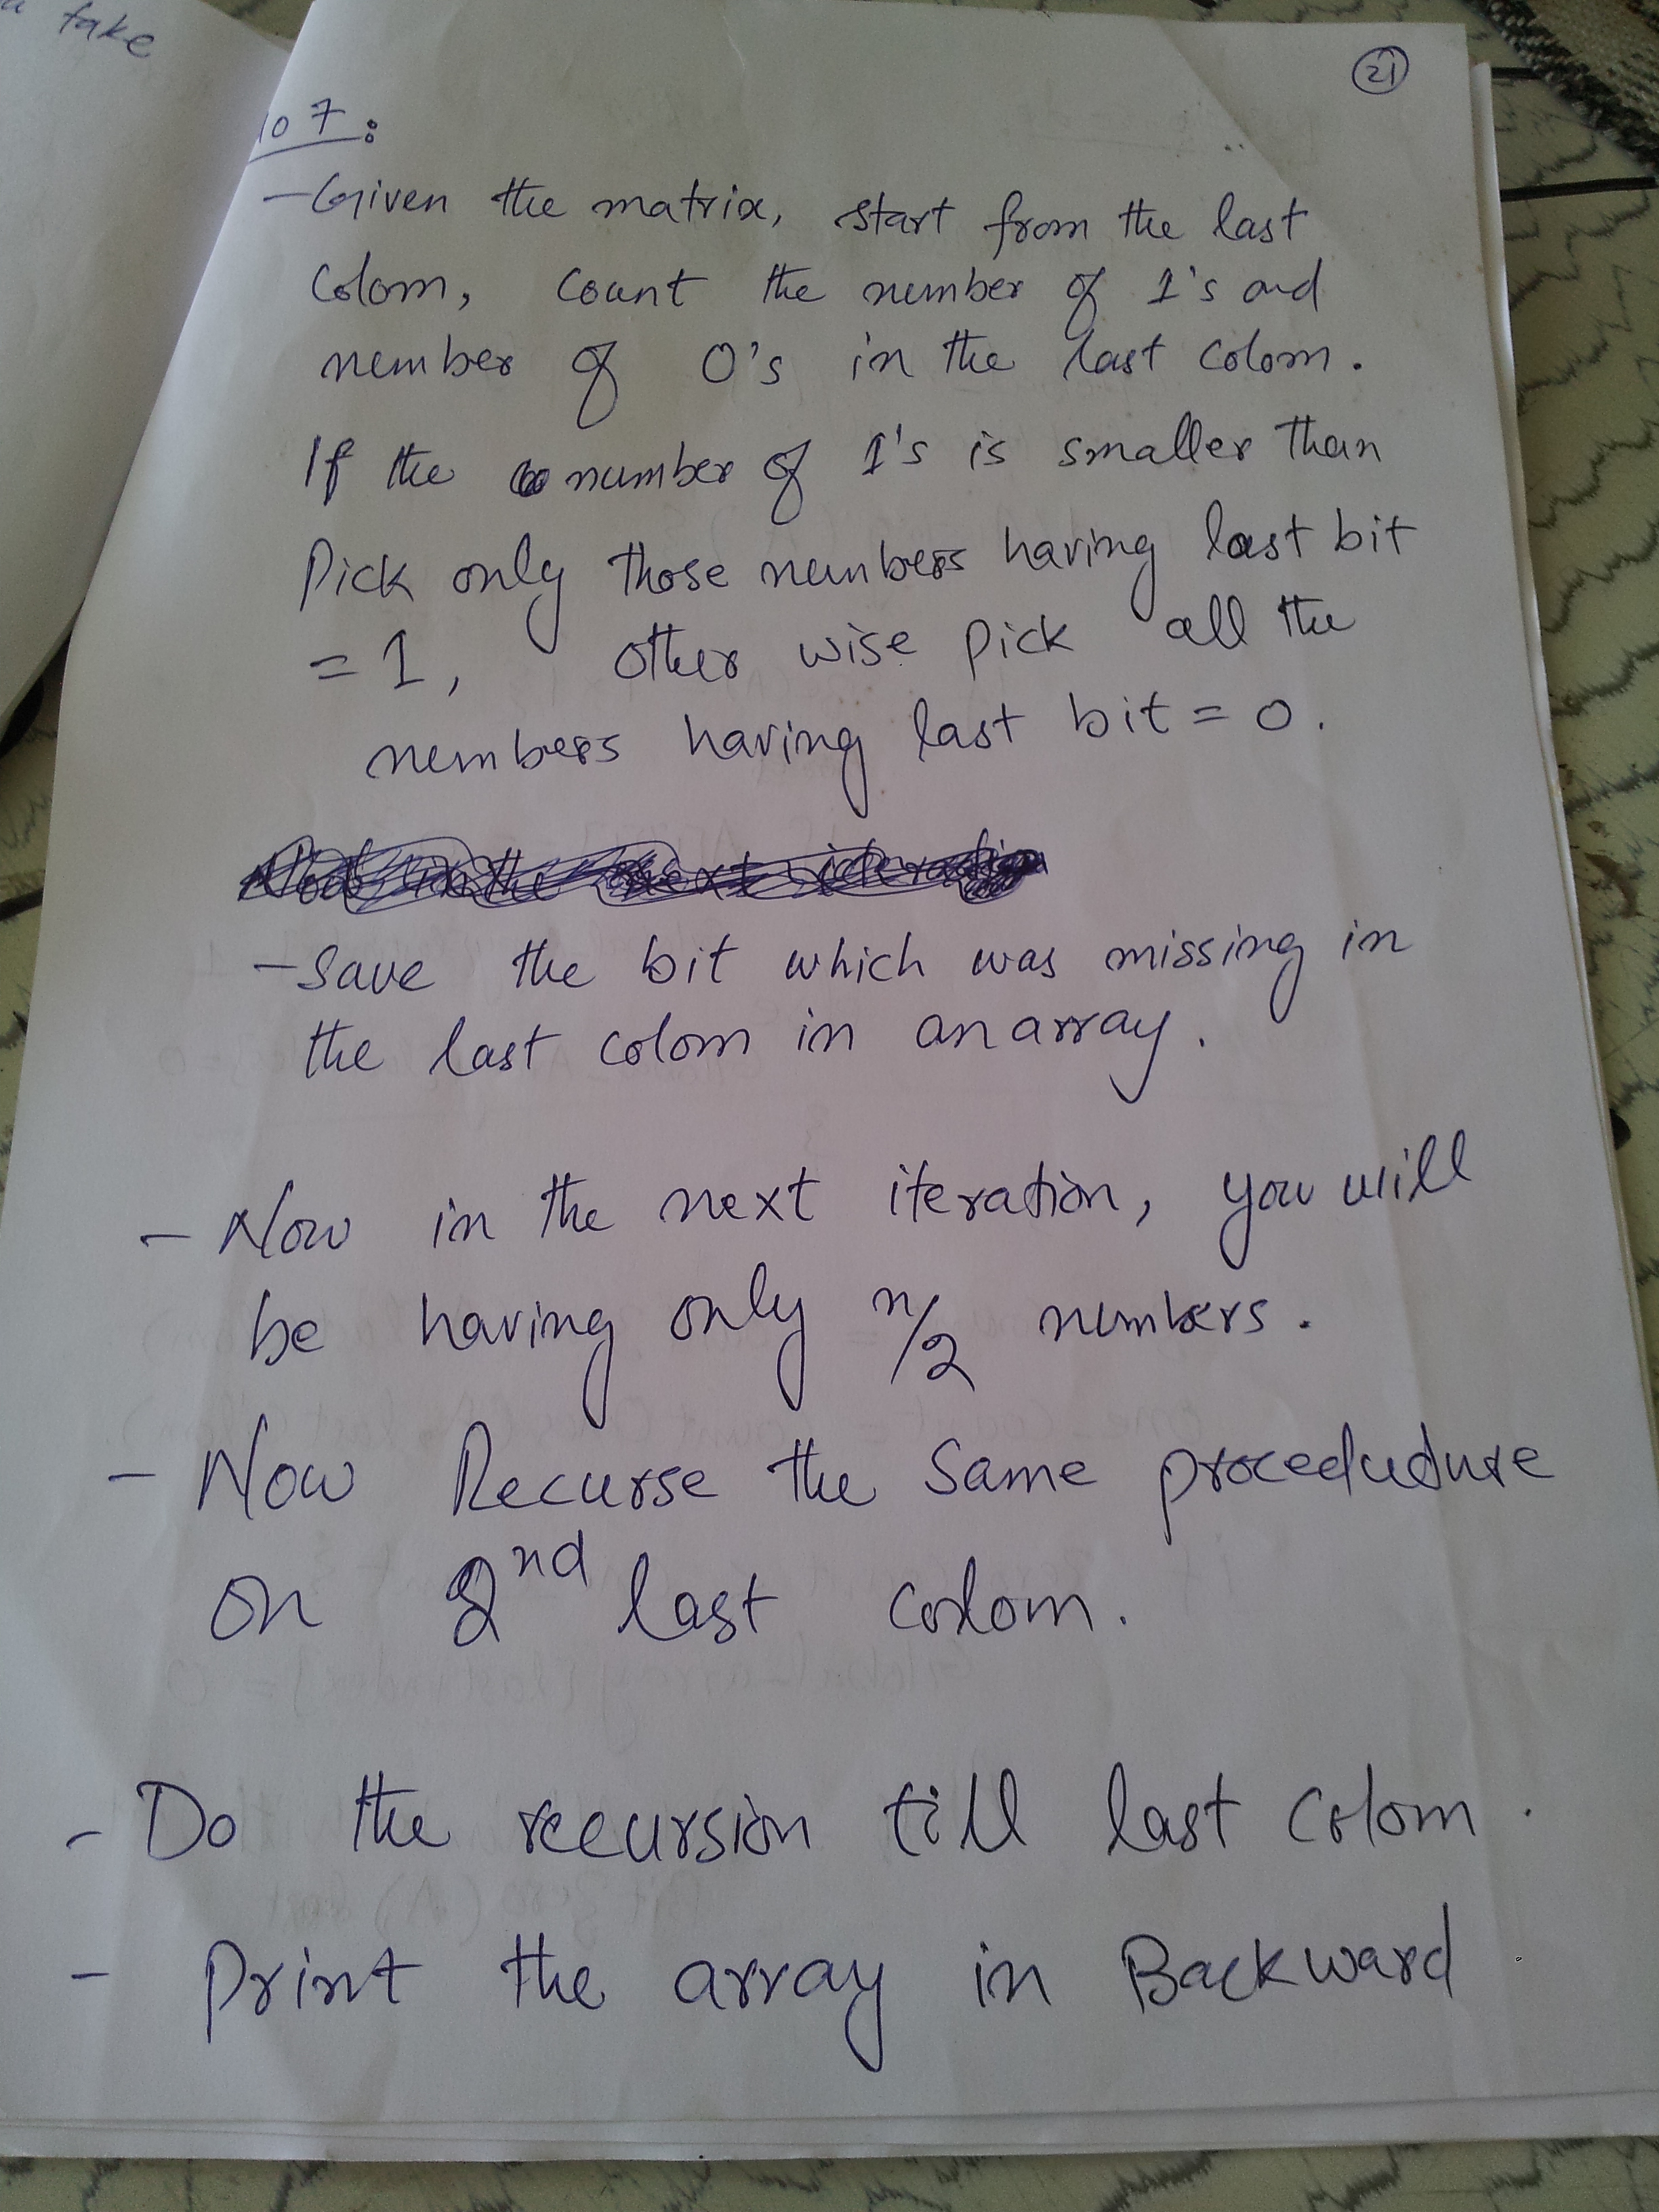 take
o 7 :
21
- Given the matrix, start from the last
colom, count the number of 1's and
number of 0's in the last colom.
If the number of 1's is smaller than
Pick only those numbers having last bit
= 1, other wise pick all the
numbers having last bit = 0.
- Save the bit which was missing in
the last colom in an array.
- Now in the next iteration, you will
be having only n/2 numbers.
- Now Recurse the same procedure
on 2nd last colom.
- Do the recursion till last colom.
- Print the array in Backward